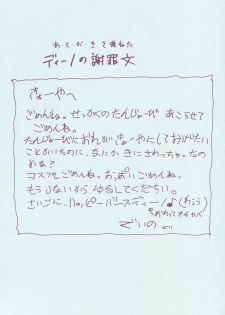 あ・と・が・きで兼ねた
ディーノの謝罪文
きょーやへ
ごめんね。せっかくのたんじょーび おこらせて
ごめんね。
たんじょーびにおれがきょーやにしておげたい
ことがいたのに、なにか きにさわっちゃったの
かな？
コスプレごめんね。おっぱいごめんね。
もうしないから ゆるしてくだちい。
さいごに、ハッピーバースディーノ♪(わらう)
でぃの